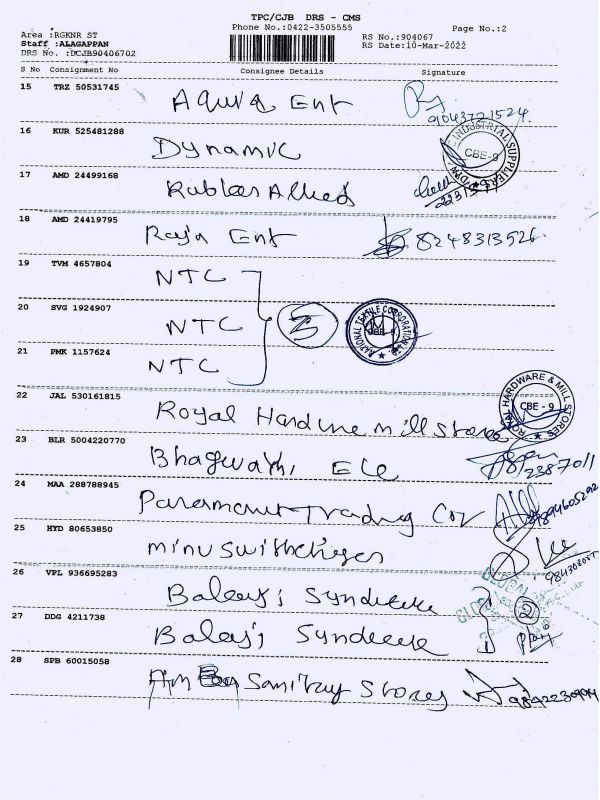 TPC/CJB DRS - CMS
Phone No.:0422-3505555
Page No.:2
Area :RGKNR ST
Staff :ALAGAPPAN
DRS No. :DCJB90406702
RS No.:904067
RS Date:10-Mar-2022
S No Consignment No Consignee Details Signature
15 TRZ 50531745 Aquia Ent 9043721524
16 KUR 525481288 Dynamic
INDUSTRIAL SUPPLIERS CBE-9
17 AMD 24499168
18 AMD 24419795 Raja Ent 8248313526
19 TVM 4657804 NTC
20 SVG 1924907 NTC 3
NATIONAL TEXTILE CORPORATION LTD. CBE-9
21 PMK 1157624 NTC
22 JAL 530161815 Royal Hardware mill stores
ROYAL HARDWARE & MILL STORES CBE - 9
23 BLR 5004220770 Bhagwathi Ele 2387011
24 MAA 288788945 Paramount Trading Cor 9894605292
25 HYD 80653850 minu switchgear
26 VPL 936695283 Balaji Syndicate
GLOBAL
2
27 DDG 4211738 Balaji Syndicate
28 SPB 60015058 Sanitary Stores